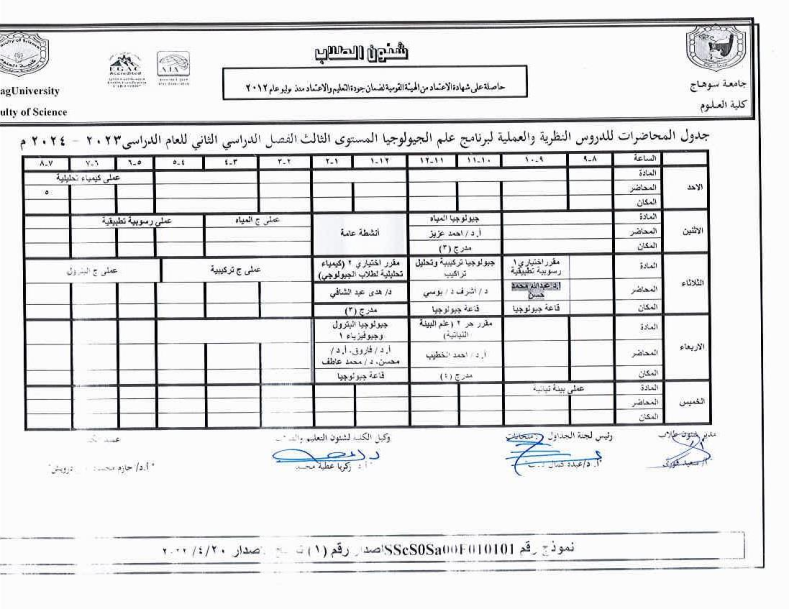 جامعة سوهاج
كلية العلوم
شئون الطلاب
حاصلة على شهادة الاعتماد من الهيئة القومية لضمان جودة التعليم والاعتماد منذ يوليو عام ٢٠١٢
agUniversity
ulty of Science
جدول المحاضرات للدروس النظرية والعملية لبرنامج علم الجيولوجيا المستوى الثالث الفصل الدراسي الثاني للعام الدراسى ٢٠٢٣ - ٢٠٢٤ م
الساعة ٨-٩ ٩-١٠ ١٠-١١ ١١-١٢ ١٢-١ ١-٢ ٢-٣ ٣-٤ ٤-٥ ٥-٦ ٦-٧ ٧-٨
الاحد
المادة عملى كيمياء تحليلية
المحاضر ٥
المكان
الاثنين
المادة جيولوجيا المياه أنشطة عامة عملى ج المياه عملى رسوبية تطبيقية
المحاضر أ.د/ احمد عزيز
المكان مدرج (٣)
الثلاثاء
المادة مقرر اختياري ١ رسوبية تطبيقية جيولوجيا تركيبية وتحليل تراكيب مقرر اختياري ٢ (كيمياء تحليلية لطلاب الجيولوجي) عملى ج تركيبية عملى ج البترول
المحاضر أ.د عبدالله محمد حسن د/ اشرف د/ بوسي د/ هدى عبد الشافي
المكان قاعة جيولوجيا قاعة جيولوجيا مدرج (٢)
الاربعاء
المادة مقرر حر ٢ (علم البيئة النباتية) جيولوجيا البترول وجيوفيزياء ١
المحاضر أ.د/ احمد الخطيب أ.د/ فاروق، أ.د/ محسن، د/ محمد عاطف
المكان مدرج (٤) قاعة جيولوجيا
الخميس
المادة عملى بيئة نباتية
المحاضر
المكان
مدير شئون طلاب رئيس لجنة الجداول وكيل الكلية لشئون التعليم والطلاب
أ/ سعيد فوزى أ.د/ عبده كمال أ.د/ زكريا عطية محمد أ.د/ حازم درويش
نموذج رقم SScS0Sa00F010101 اصدار رقم (١) اصدار ٢٠/٤/